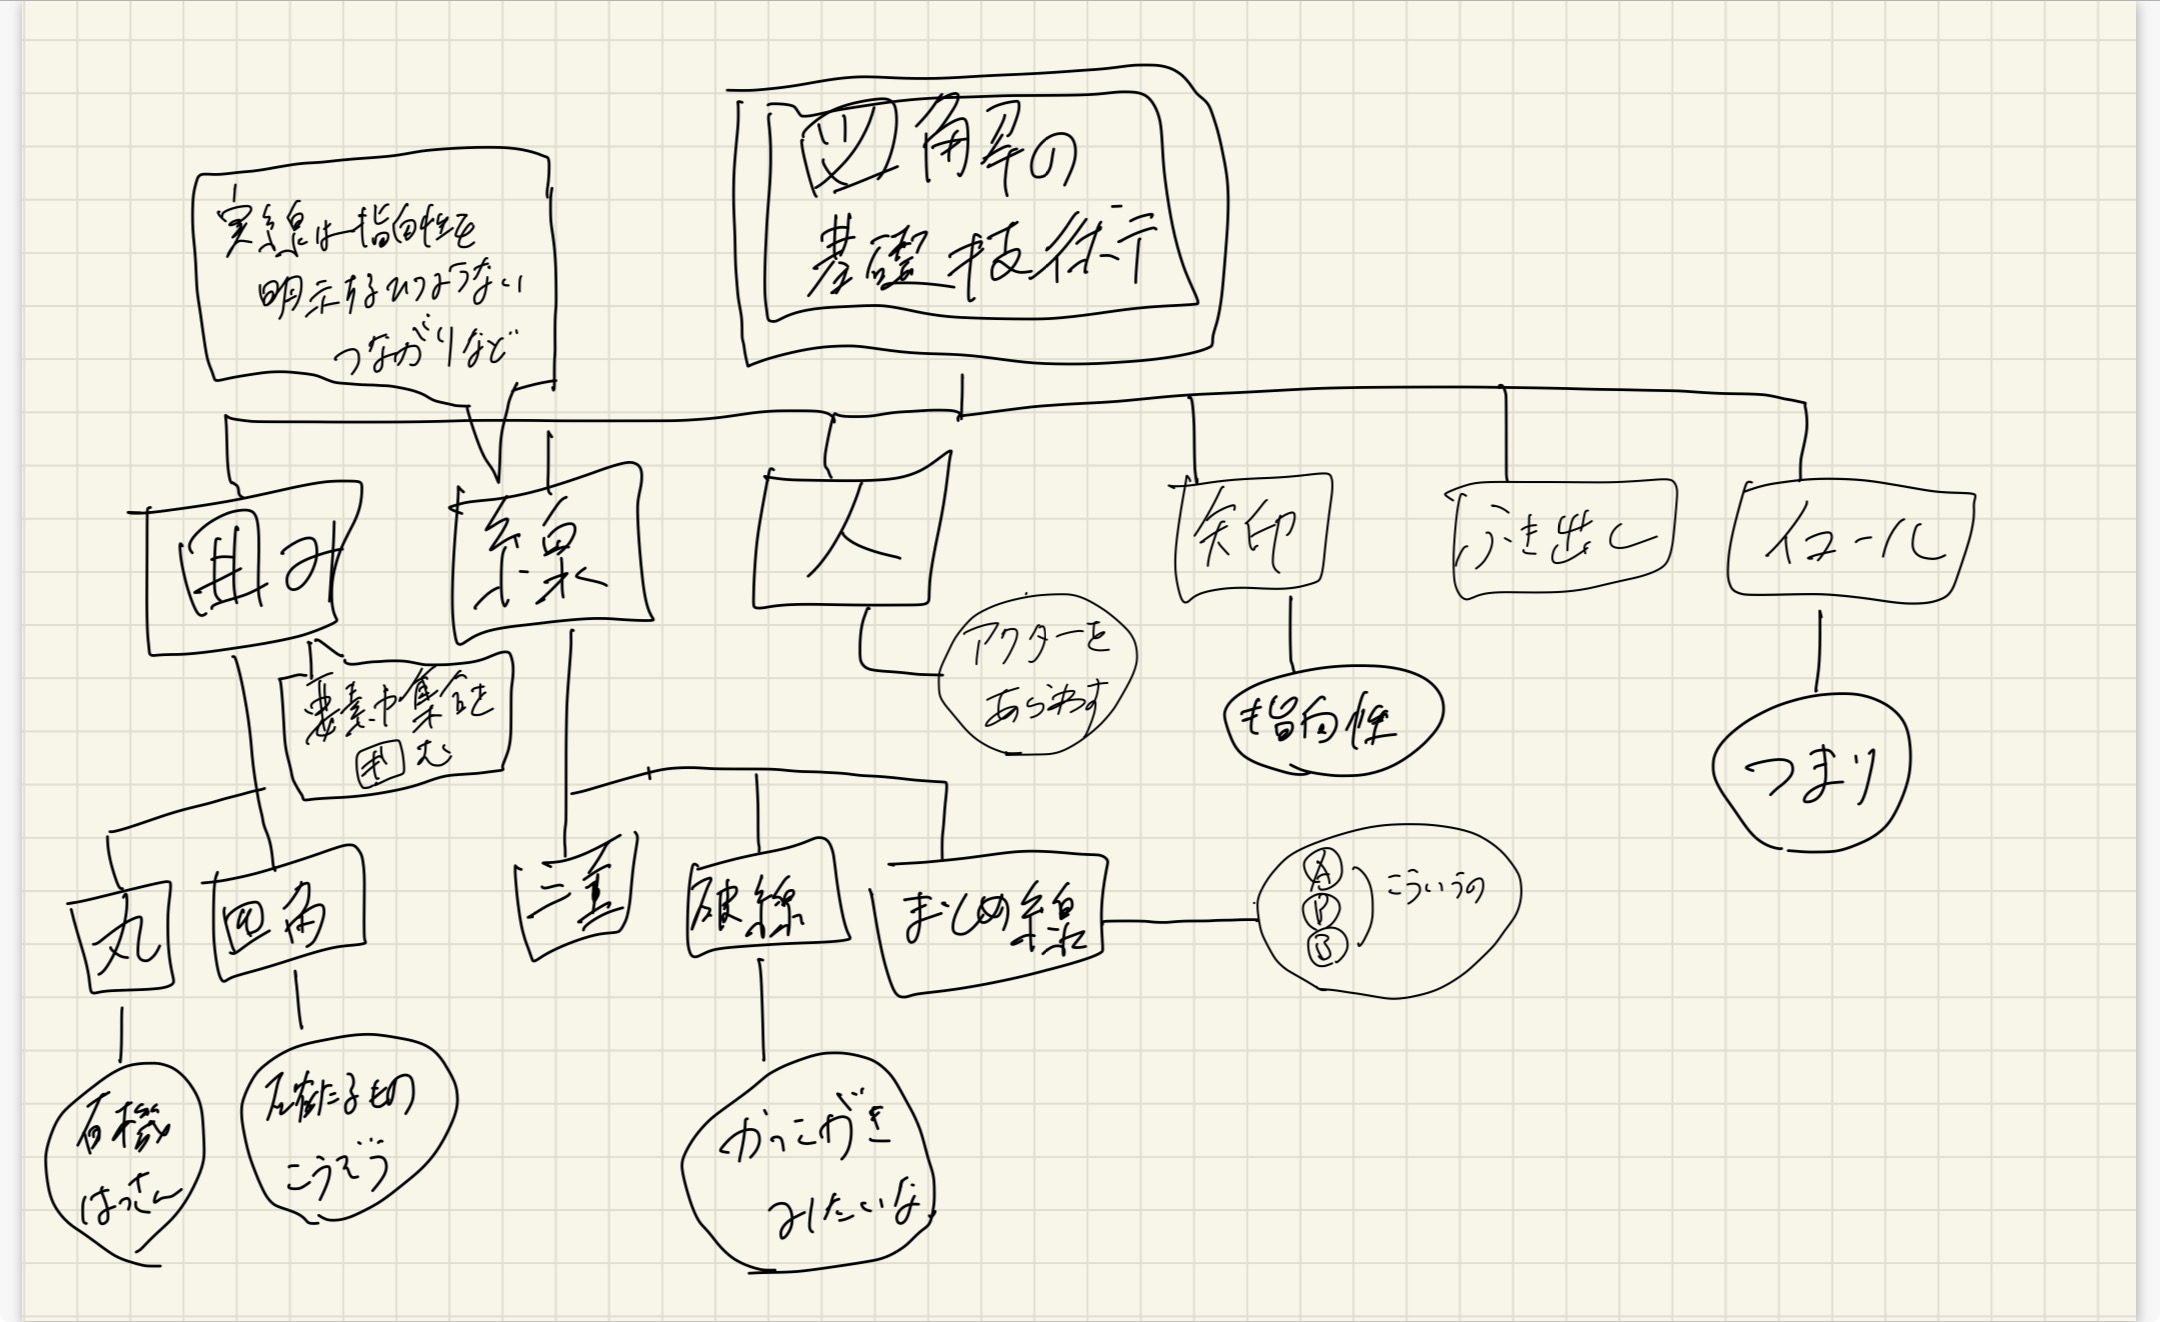 図解の
基礎技術
実線は指向性を
明示するひつようない
つながりなど
囲み
線
人
矢印
ふき出し
イコール
要素や集合を
囲む
アクターを
あらわす
指向性
つまり
丸
四角
二重
破線
まとめ線
A
P
B
こういうの
有機
はっさん
確たるもの
こうぞう
かっこがき
みたいな